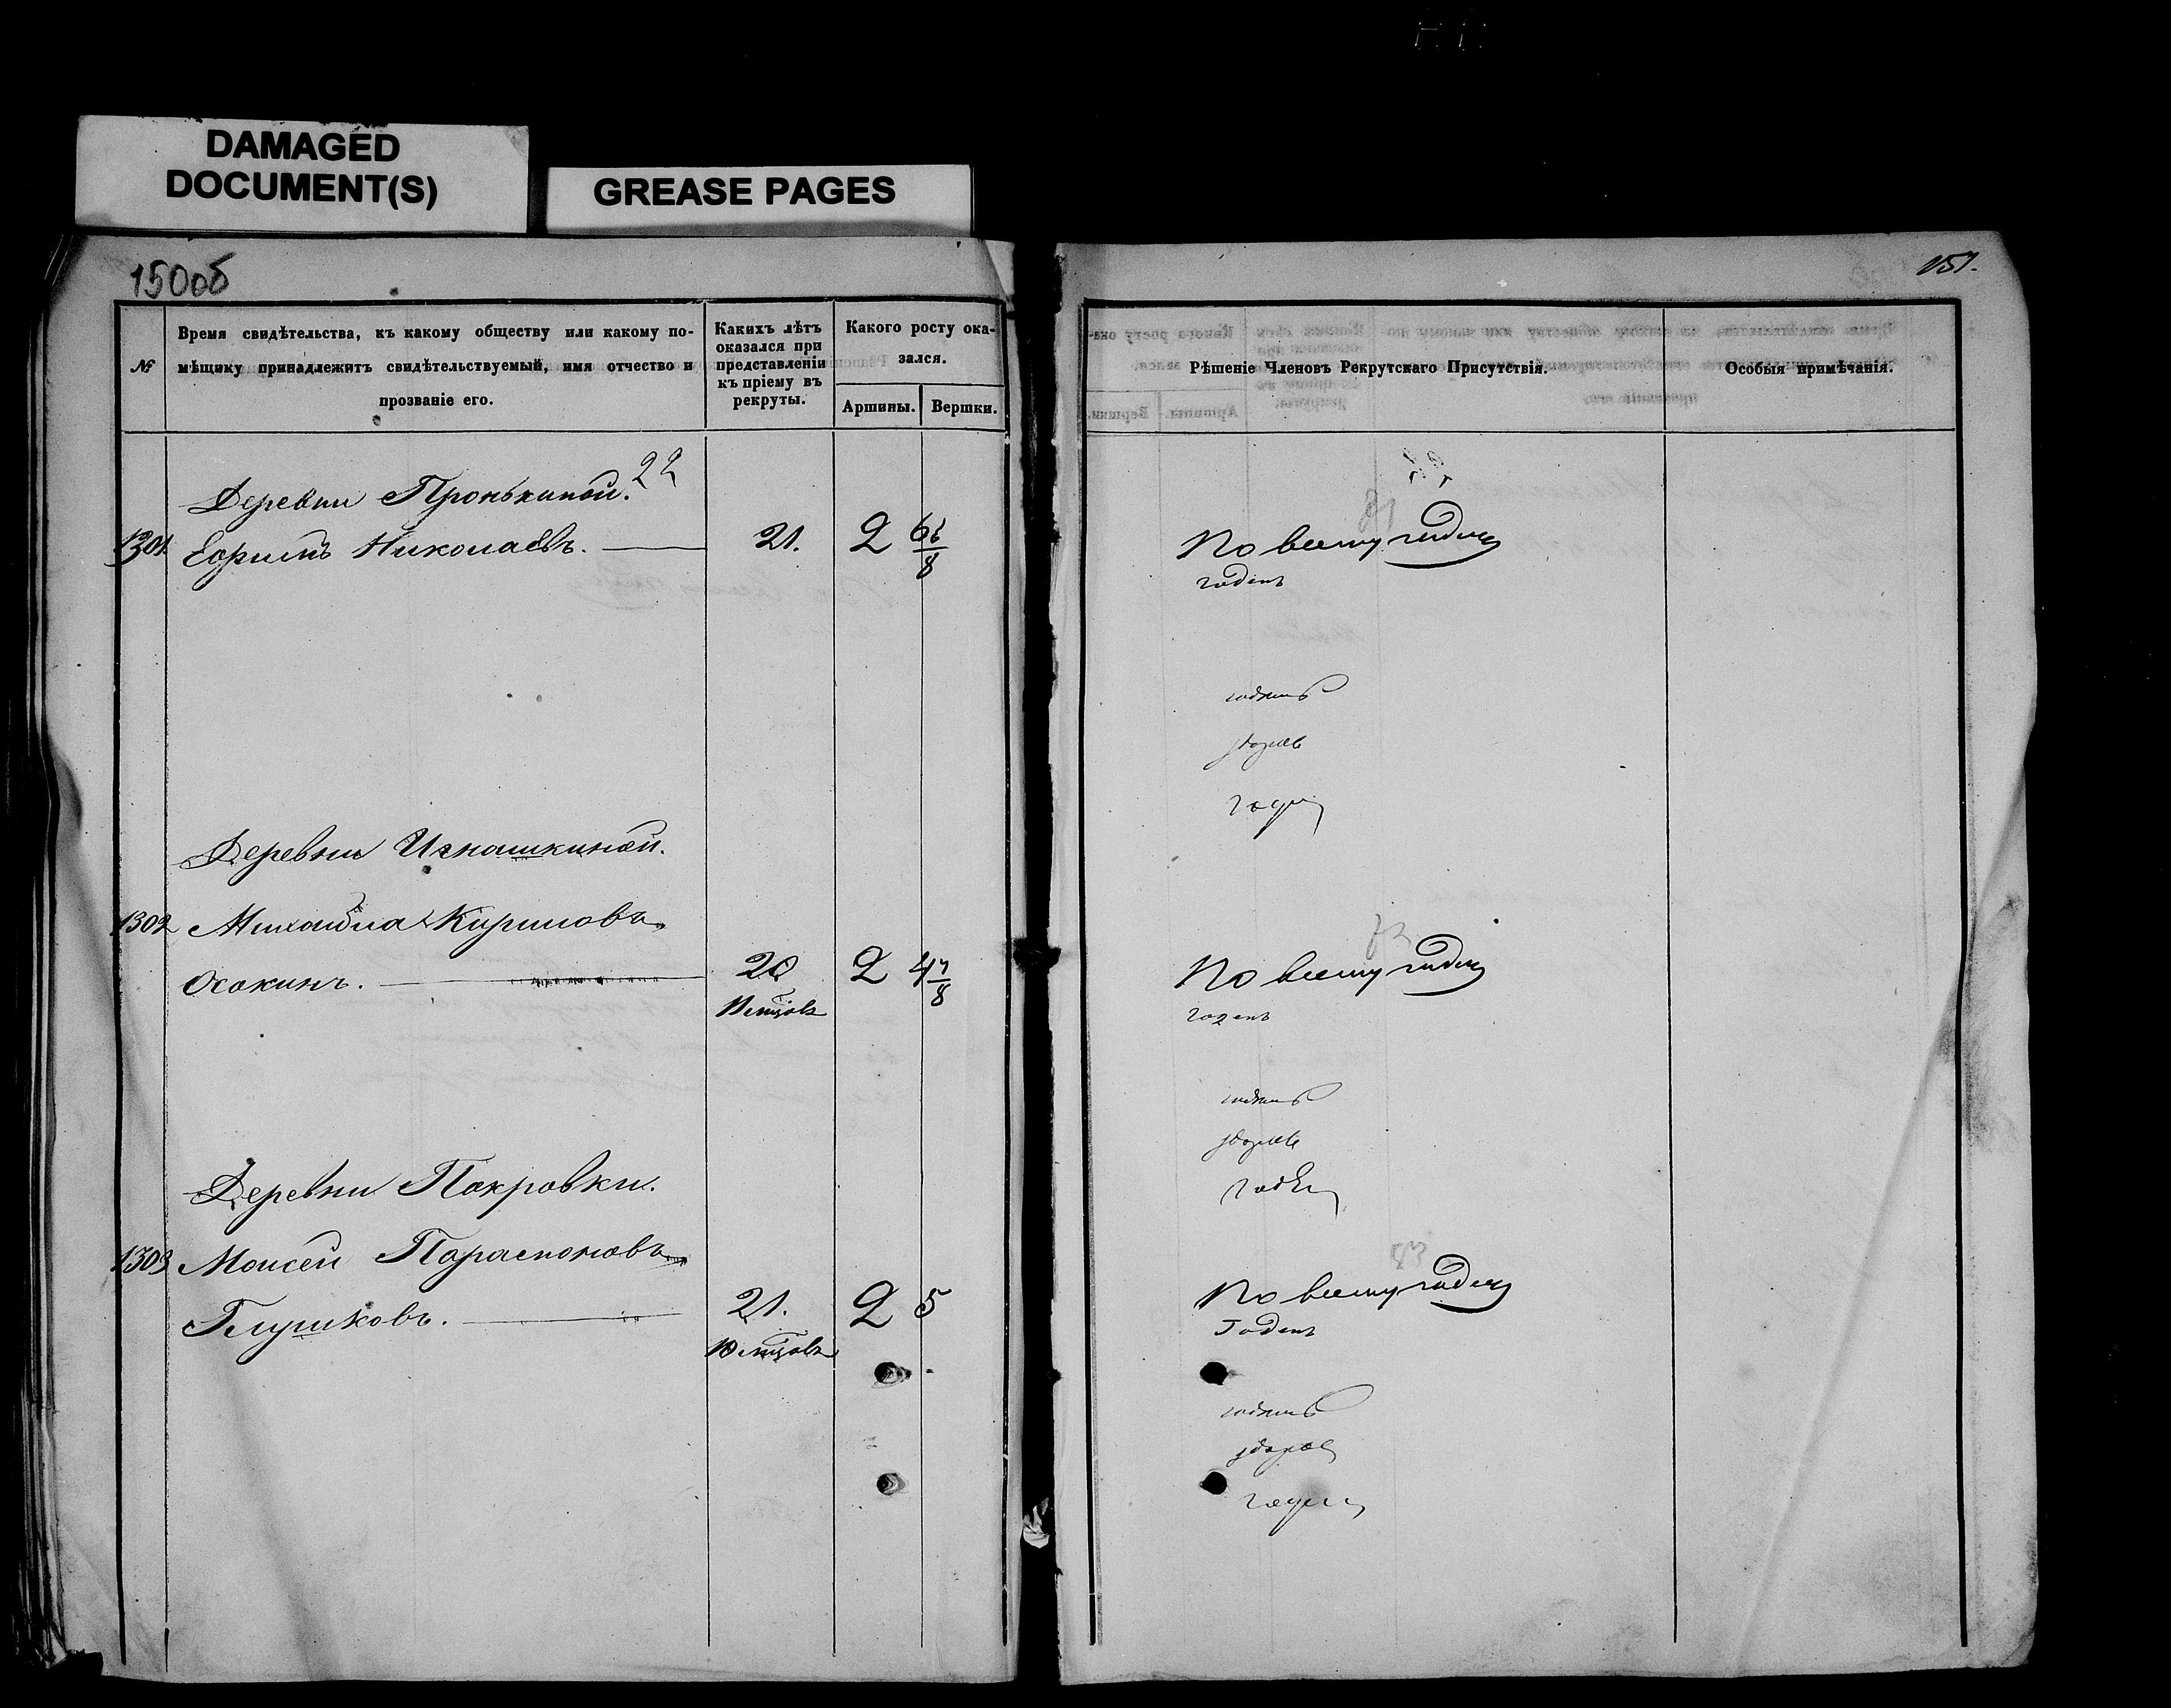 DAMAGED
DOCUMENT(S)
GREASE PAGES
150об
№
Время свидѣтельства, къ какому обществу или какому по-
мѣщику принадлежитъ свидѣтельствуемый, имя отчество и
прозваніе его.
Какихъ лѣтъ
оказался при
представленіи
къ пріему въ
рекруты.
Какого росту ока-
зался.
Аршины.
Вершки.
Деревни Пронькиной. 22
1301 Ефимъ Николаевъ. 21. 2
Деревни Игнашкиной.
1302 Михайла Кириловъ
Осокинъ. 20 2 4 7/8
Деревни Покровки.
1303 Моисей Парамоновъ
Глушковъ. 21. 2 5
151.
Рѣшеніе Членовъ Рекрутскаго Присутствія.
Особыя примѣчанія.
По всему годенъ
годенъ
годенъ
здоровъ
годенъ
По всему годенъ
годенъ
годенъ
здоровъ
годенъ
По всему годенъ
Годенъ
годенъ
здоровъ
годенъ